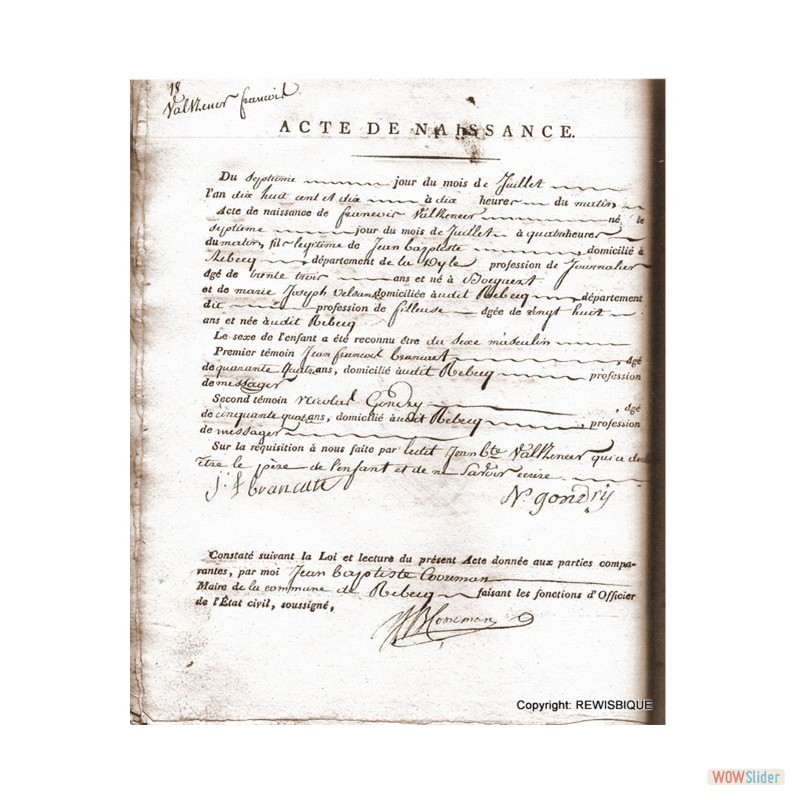 18
Valkeneer francois
ACTE DE NAISSANCE.
Du septieme jour du mois de Juillet
l'an dix huit cent et dix à dix heures du matin,
Acte de naissance de francois Valkeneer né le
septieme jour du mois de Juillet à quatre heures
du matin, fils legitime de Jean baptiste , domicilié à
Rebecq , département de la Dyle profession de Journalier
âgé de trente trois ans et né à
et de marie Joseph domiciliée audit Rebecq , département
dit profession de fileuse âgée de vingt huit
ans et née audit Rebecq
Le sexe de l'enfant a été reconnu être du sexe masculin
Premier témoin Jean francois , âgé
de quarante quatre ans, domicilié audit Rebecq profession
de messager
Second témoin Nicolas Gondry , âgé
de cinquante quatre ans, domicilié audit Rebecq , profession
de messager
Sur la réquisition à nous faite par ledit Jean Bte Valkeneer qui a dit
être le père de l'enfant et de ne savoir ecrire.
j. f
N. gondry
Constaté suivant la Loi et lecture du présent Acte donnée aux parties compa-
rantes, par moi Jean baptiste
Maire de la commune de Rebecq faisant les fonctions d'Officier
de l'État civil, soussigné,
Copyright: REWISBIQUE
WOWSlider